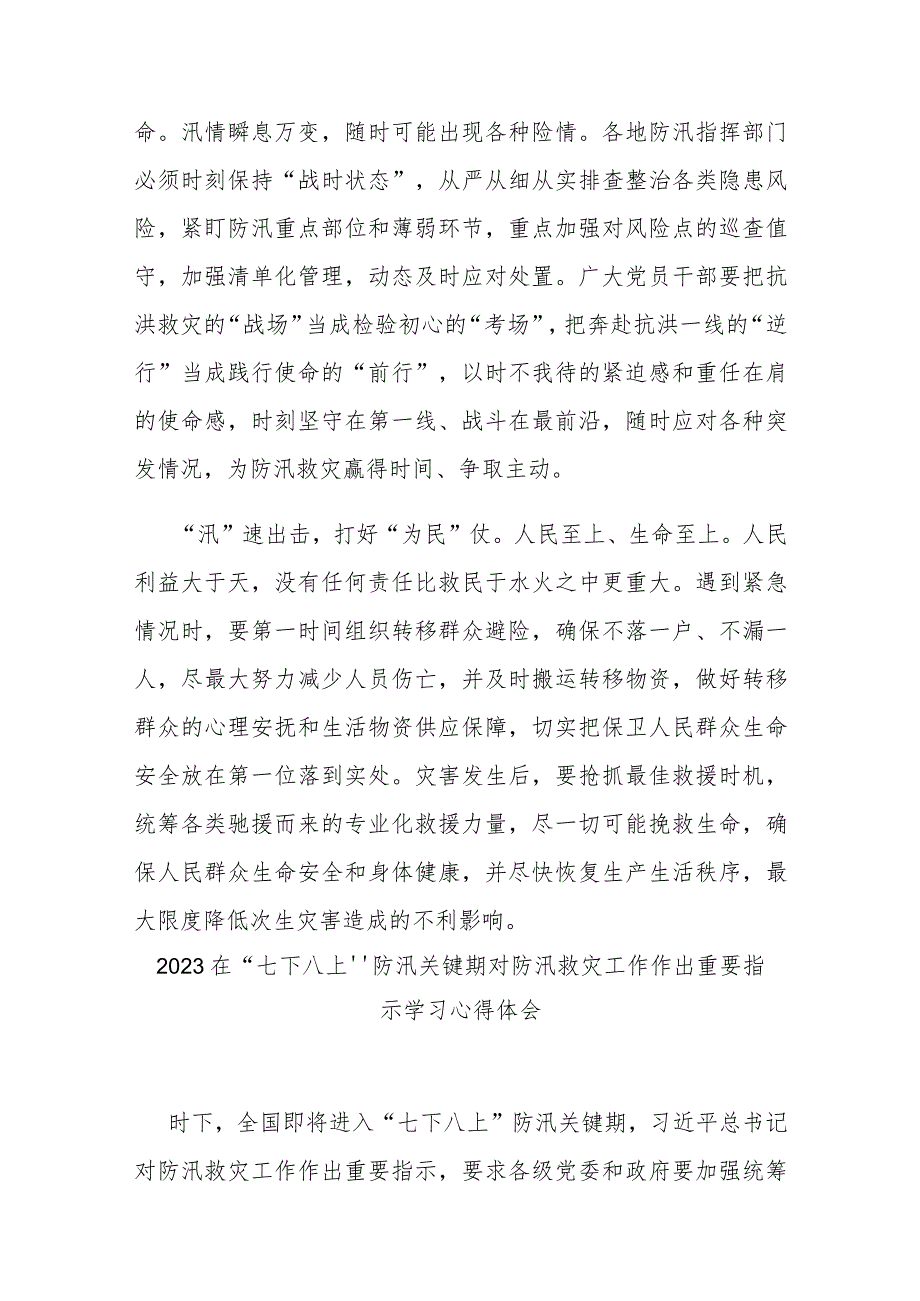 命。汛情瞬息万变，随时可能出现各种险情。各地防汛指挥部门
必须时刻保持“战时状态”，从严从细从实排查整治各类隐患风
险，紧盯防汛重点部位和薄弱环节，重点加强对风险点的巡查值
守，加强清单化管理，动态及时应对处置。广大党员干部要把抗
洪救灾的“战场”当成检验初心的“考场”，把奔赴抗洪一线的“逆
行”当成践行使命的“前行”，以时不我待的紧迫感和重任在肩
的使命感，时刻坚守在第一线、战斗在最前沿，随时应对各种突
发情况，为防汛救灾赢得时间、争取主动。
“汛”速出击，打好“为民”仗。人民至上、生命至上。人民
利益大于天，没有任何责任比救民于水火之中更重大。遇到紧急
情况时，要第一时间组织转移群众避险，确保不落一户、不漏一
人，尽最大努力减少人员伤亡，并及时搬运转移物资，做好转移
群众的心理安抚和生活物资供应保障，切实把保卫人民群众生命
安全放在第一位落到实处。灾害发生后，要抢抓最佳救援时机，
统筹各类驰援而来的专业化救援力量，尽一切可能挽救生命，确
保人民群众生命安全和身体健康，并尽快恢复生产生活秩序，最
大限度降低次生灾害造成的不利影响。
2023在“七下八上''防汛关键期对防汛救灾工作作出重要指
示学习心得体会
时下，全国即将进入“七下八上”防汛关键期，习近平总书记
对防汛救灾工作作出重要指示，要求各级党委和政府要加强统筹